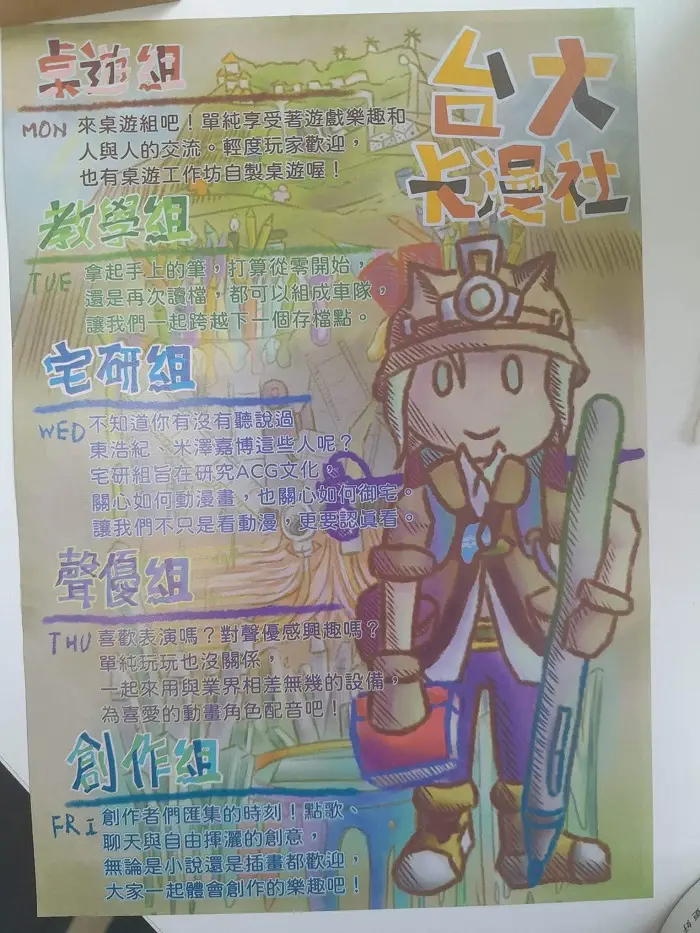 台大
卡漫社
桌遊組
MON 來桌遊組吧！單純享受著遊戲樂趣和
人與人的交流。輕度玩家歡迎，
也有桌遊工作坊自製桌遊喔！
教學組
TUE 拿起手上的筆，打算從零開始，
還是再次讀檔，都可以組成車隊，
讓我們一起跨越下一個存檔點。
宅研組
WED 不知道你有沒有聽說過
東浩紀、米澤嘉博這些人呢？
宅研組旨在研究ACG文化，
關心如何動漫畫，也關心如何御宅。
讓我們不只是看動漫，更要認真看。
聲優組
THU 喜歡表演嗎？對聲優感興趣嗎？
單純玩玩也沒關係，
一起來用與業界相差無幾的設備，
為喜愛的動畫角色配音吧！
創作組
FRI 創作者們匯集的時刻！點歌、
聊天與自由揮灑的創意，
無論是小說還是插畫都歡迎，
大家一起體會創作的樂趣吧！